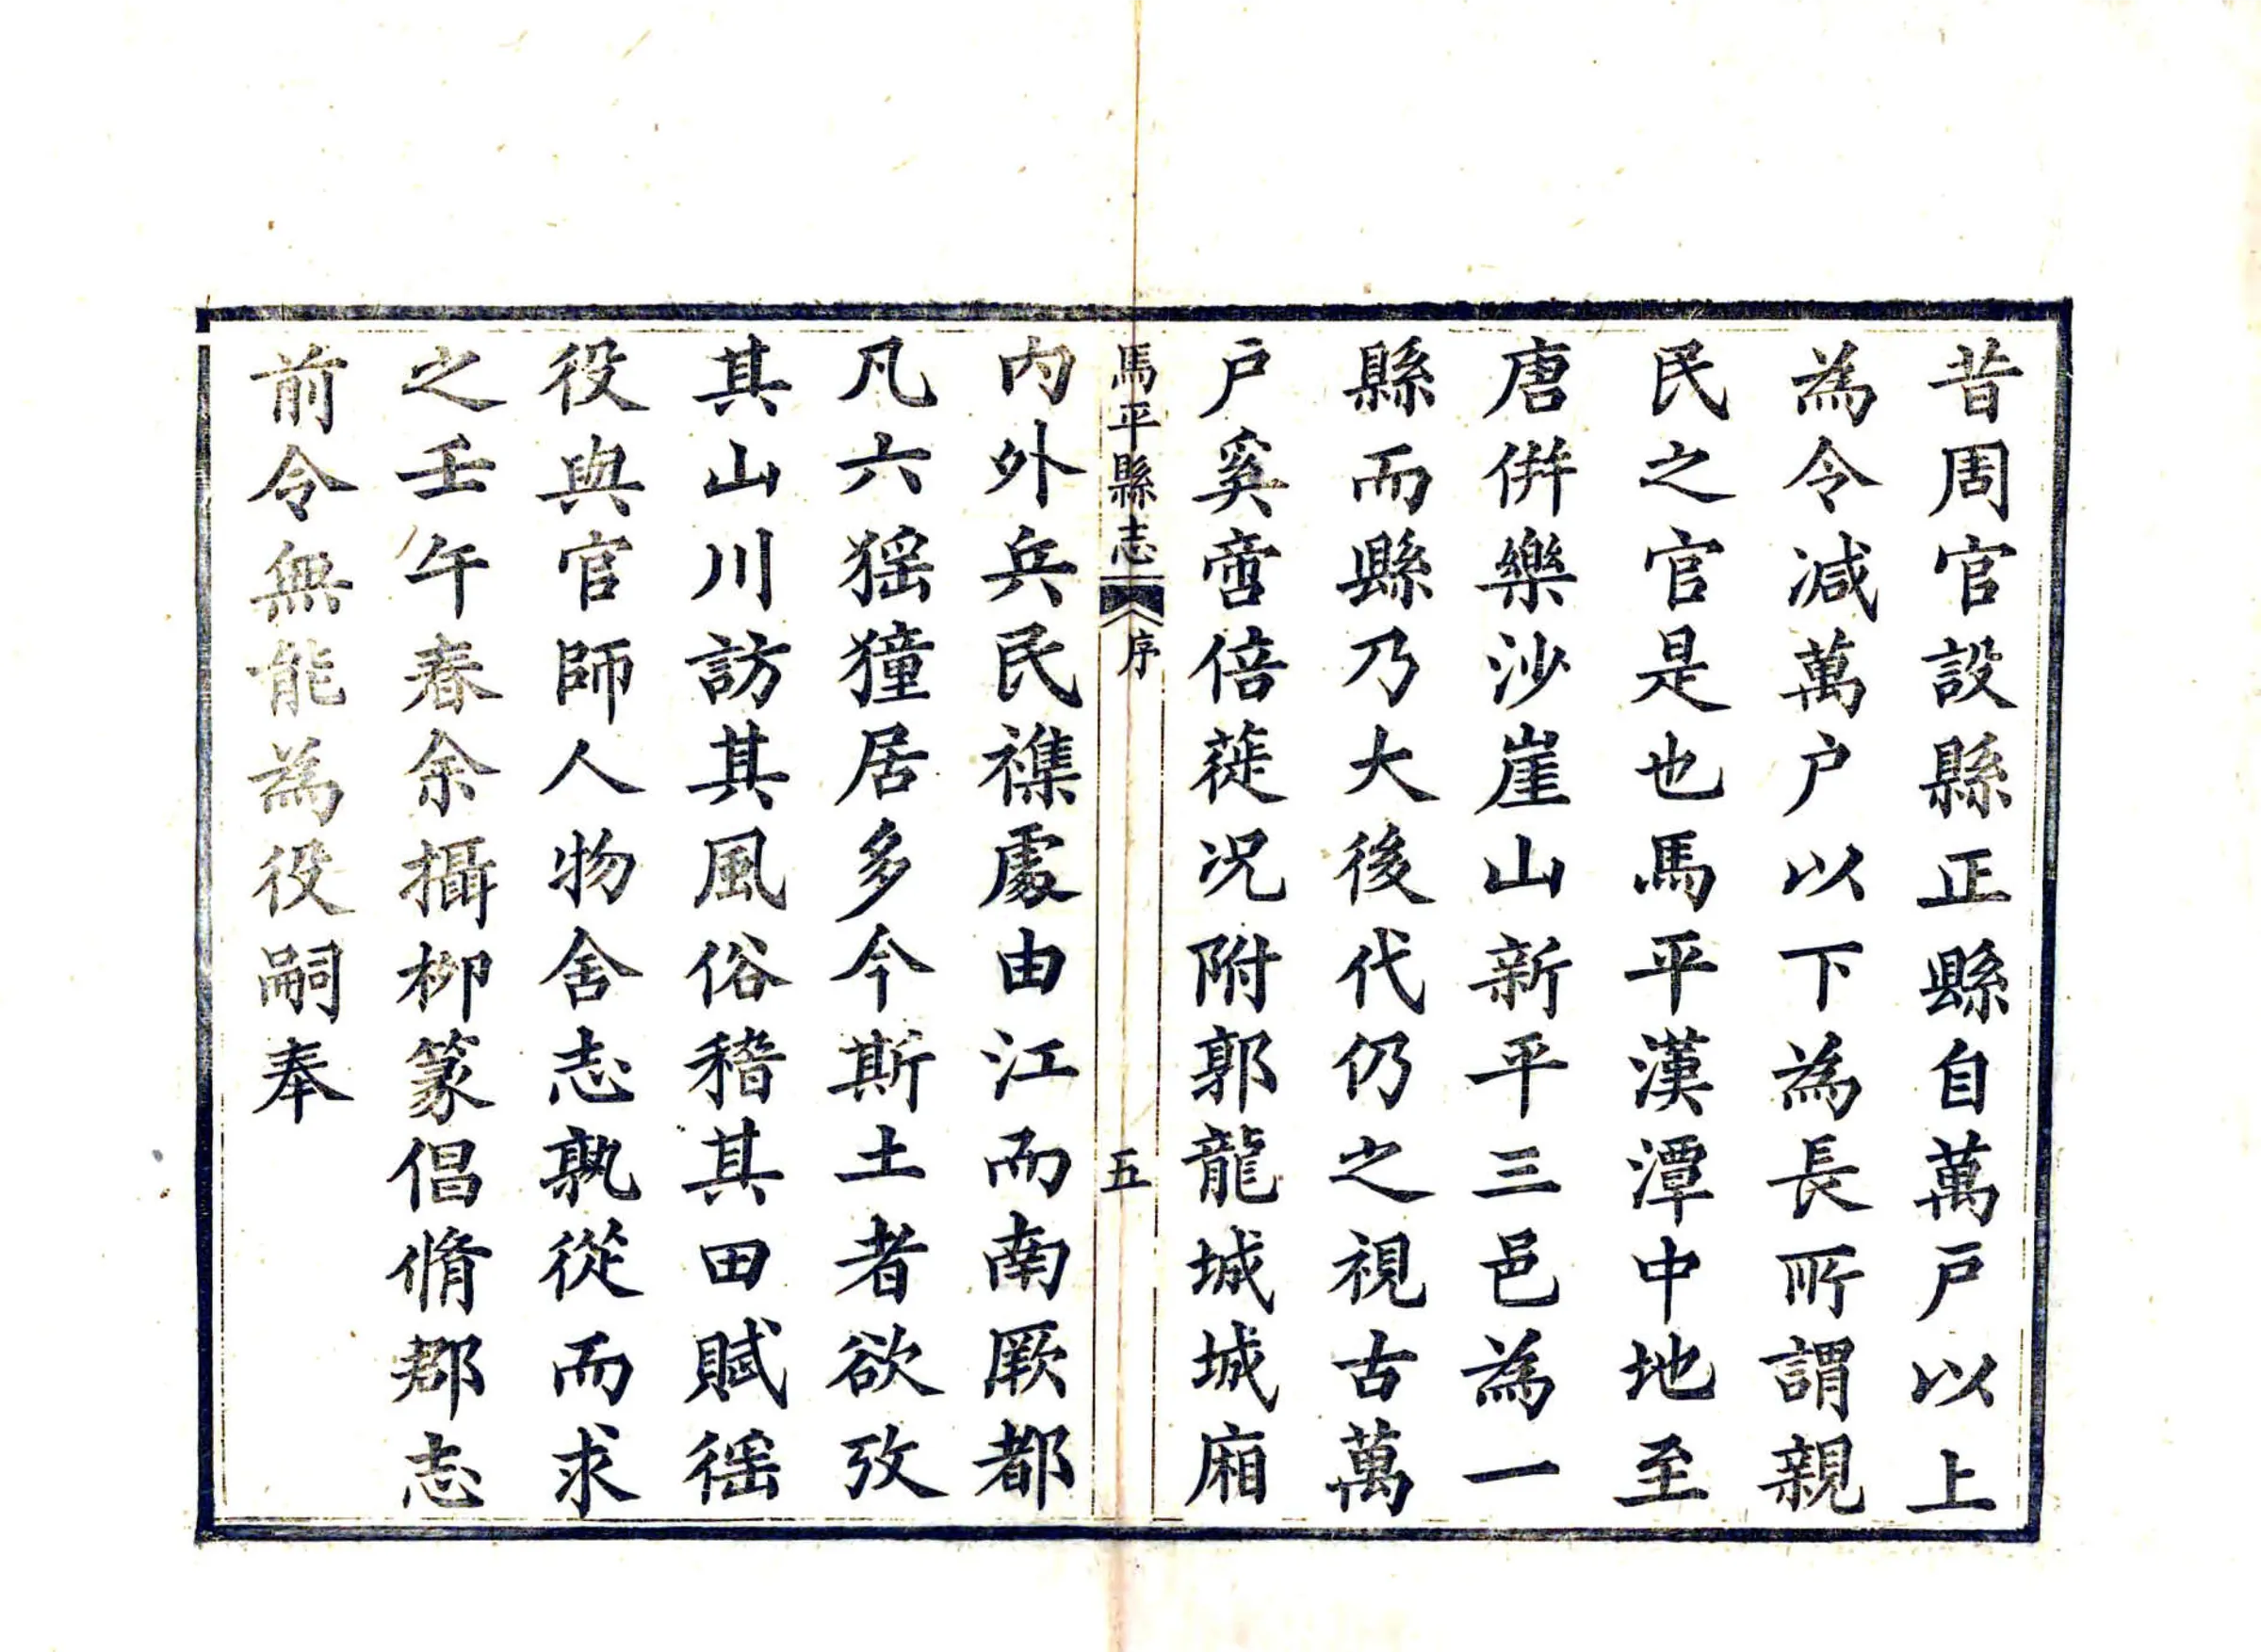 昔周官設縣正縣自萬戸以上
為令減萬户以下為長所謂親
民之官是也馬平漢潭中地至
唐併樂沙崖山新平三邑為一
縣而縣乃大後代仍之視古萬
户奚啻倍蓰况附郭龍城城廂
馬平縣志
序
五
内外兵民襍處由江而南厥都
凡六猺獞居多今斯土者欲攷
其山川訪其風俗稽其田賦徭
役與官師人物舍志孰從而求
之壬午春余攝柳篆倡脩郡志
前令無能為役嗣奉